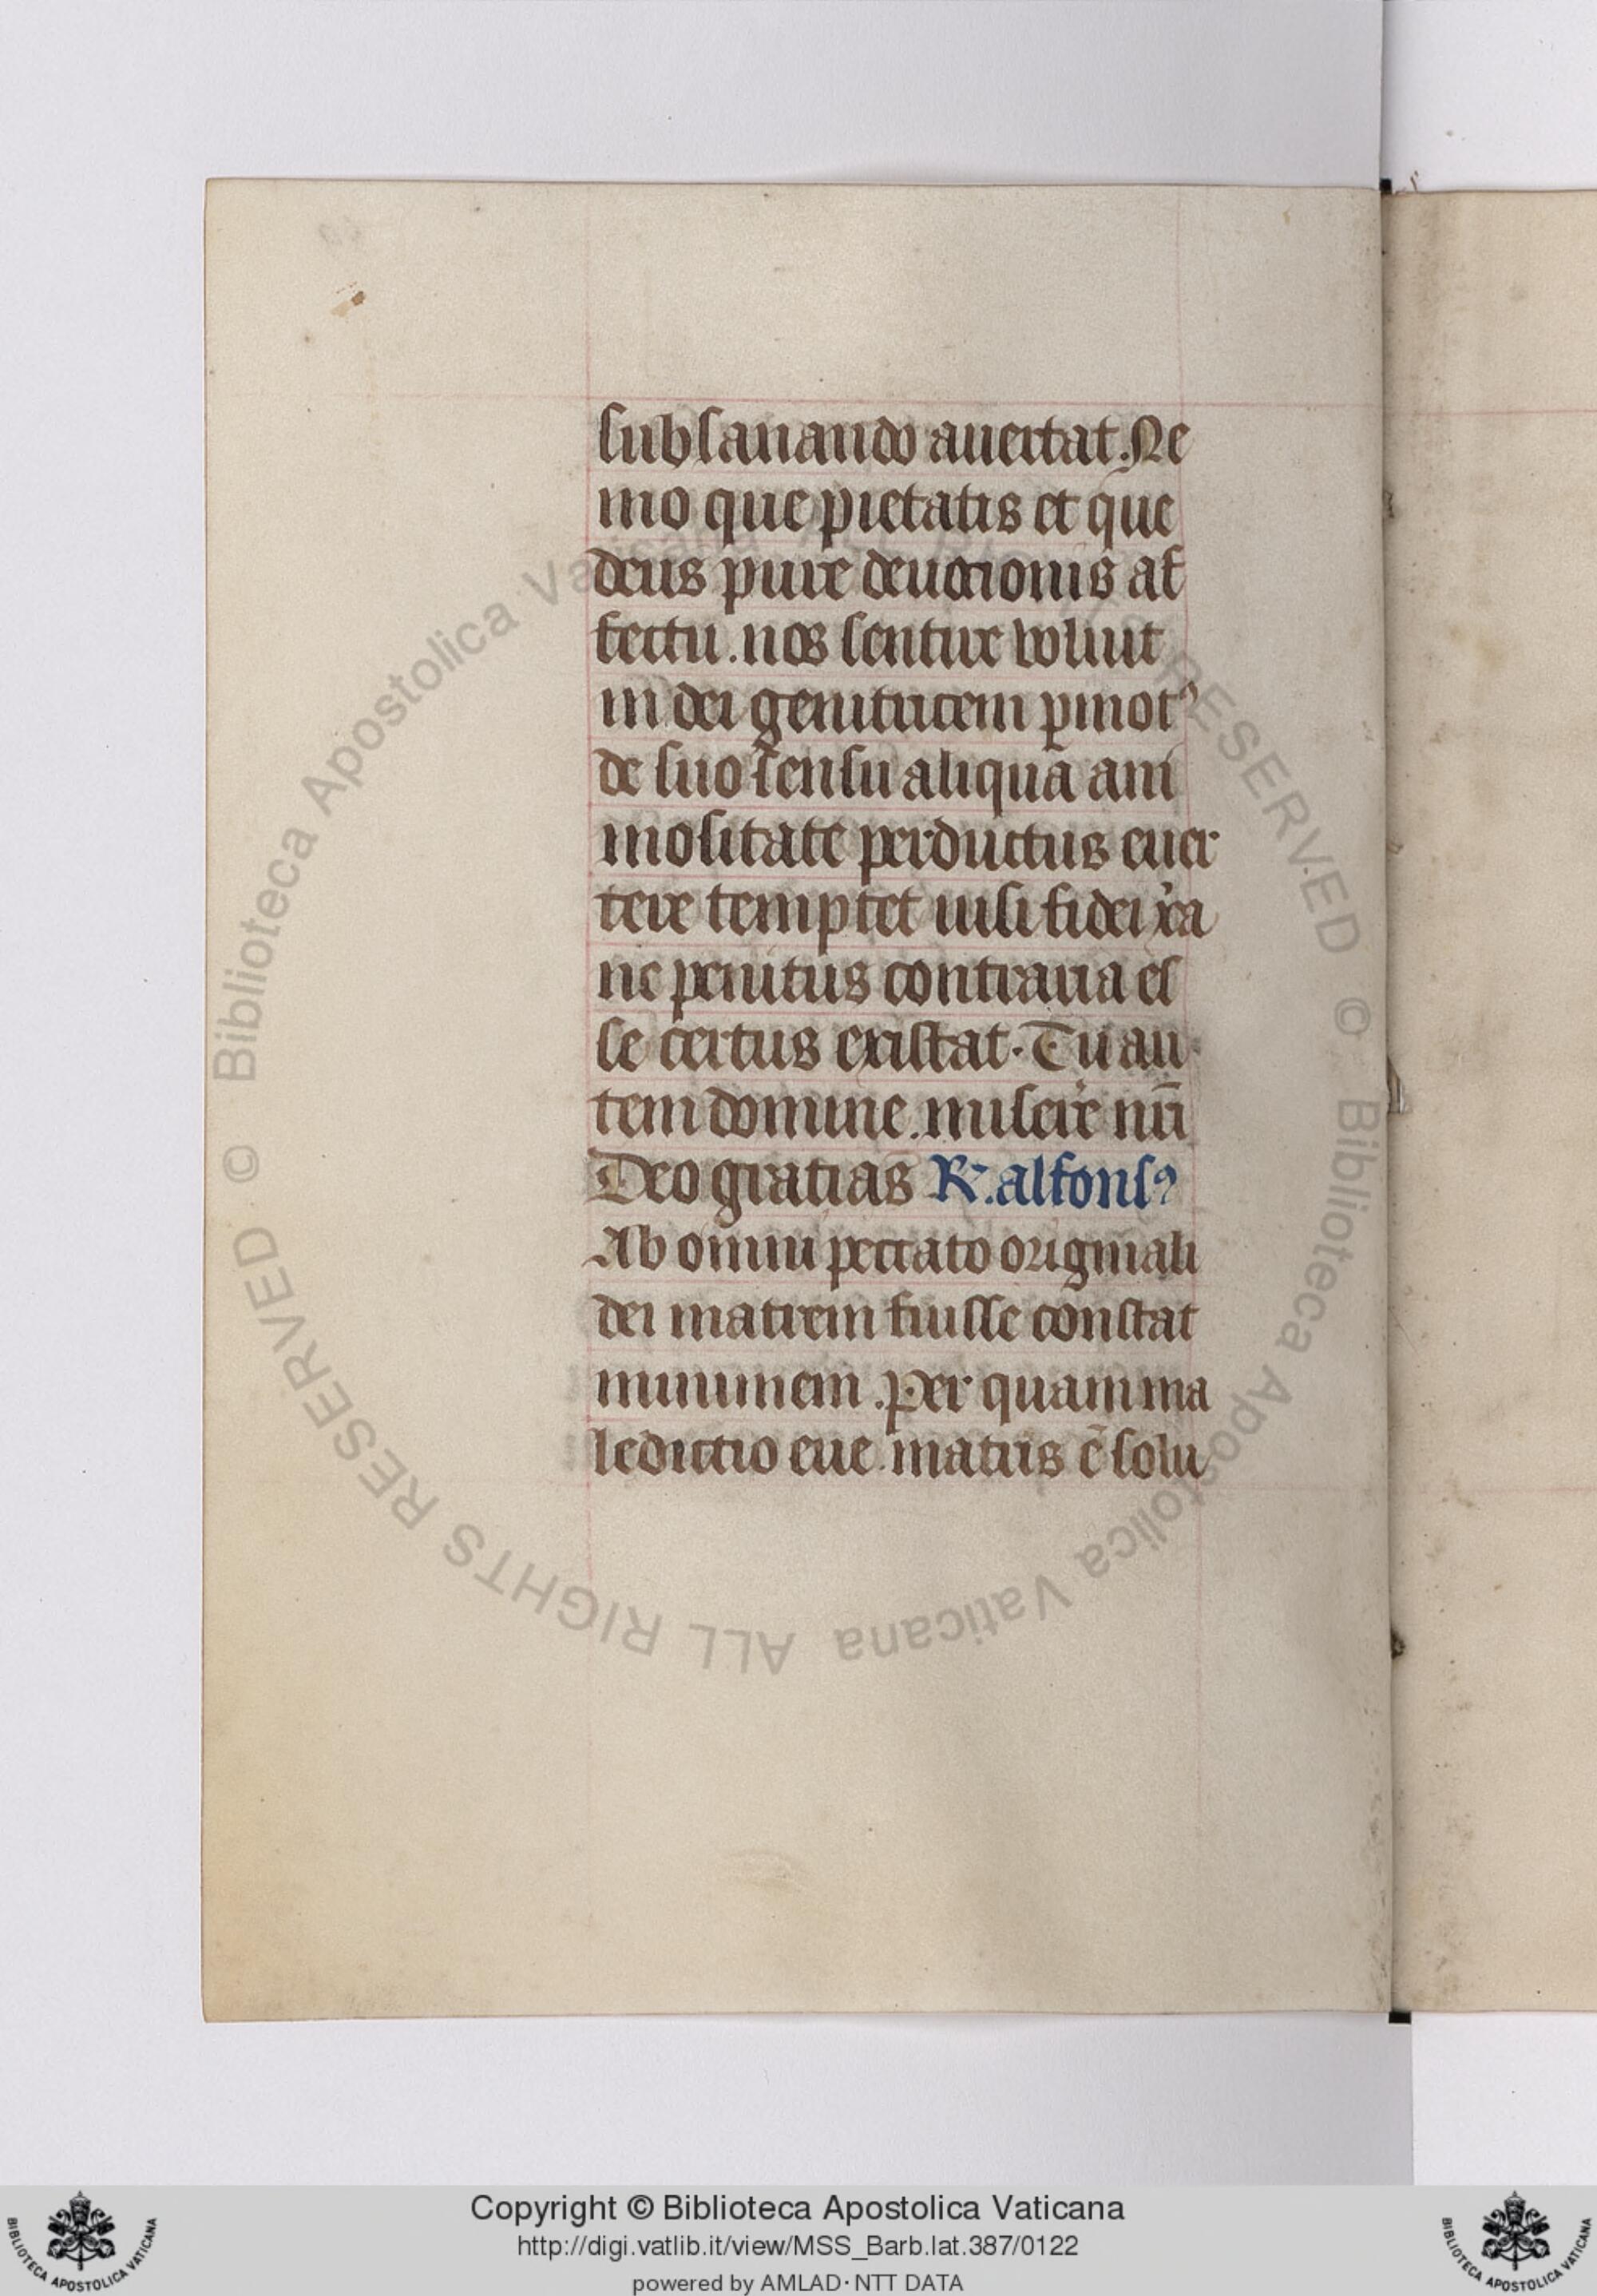 subsanando auertat. Ne
mo que pietatis et que
deus pure deuocionis af
fectu. nos sentire voluit
in dei genitricem pmotꝰ
de suo sensu aliqua ani
mositate perductus euer
tere temptet nisi fidei xa
ne penitus contraria es
se certus existat. Tu au
tem domine. misere nri
Deo gratias R. alfonsꝰ
Ab omni peccato originali
dei matrem fuisse constat
inmunem. Per quam ma
ledictio eue matris ē solu
© Biblioteca Apostolica Vaticana ALL RIGHTS RESERVED © Biblioteca Apostolica Vaticana ALL RIGHTS RESERVED
BIBLIOTECA APOSTOLICA VATICANA
Copyright © Biblioteca Apostolica Vaticana
http://digi.vatlib.it/view/MSS_Barb.lat.387/0122
powered by AMLAD·NTT DATA
BIBLIOTECA APOSTOLICA VATICANA